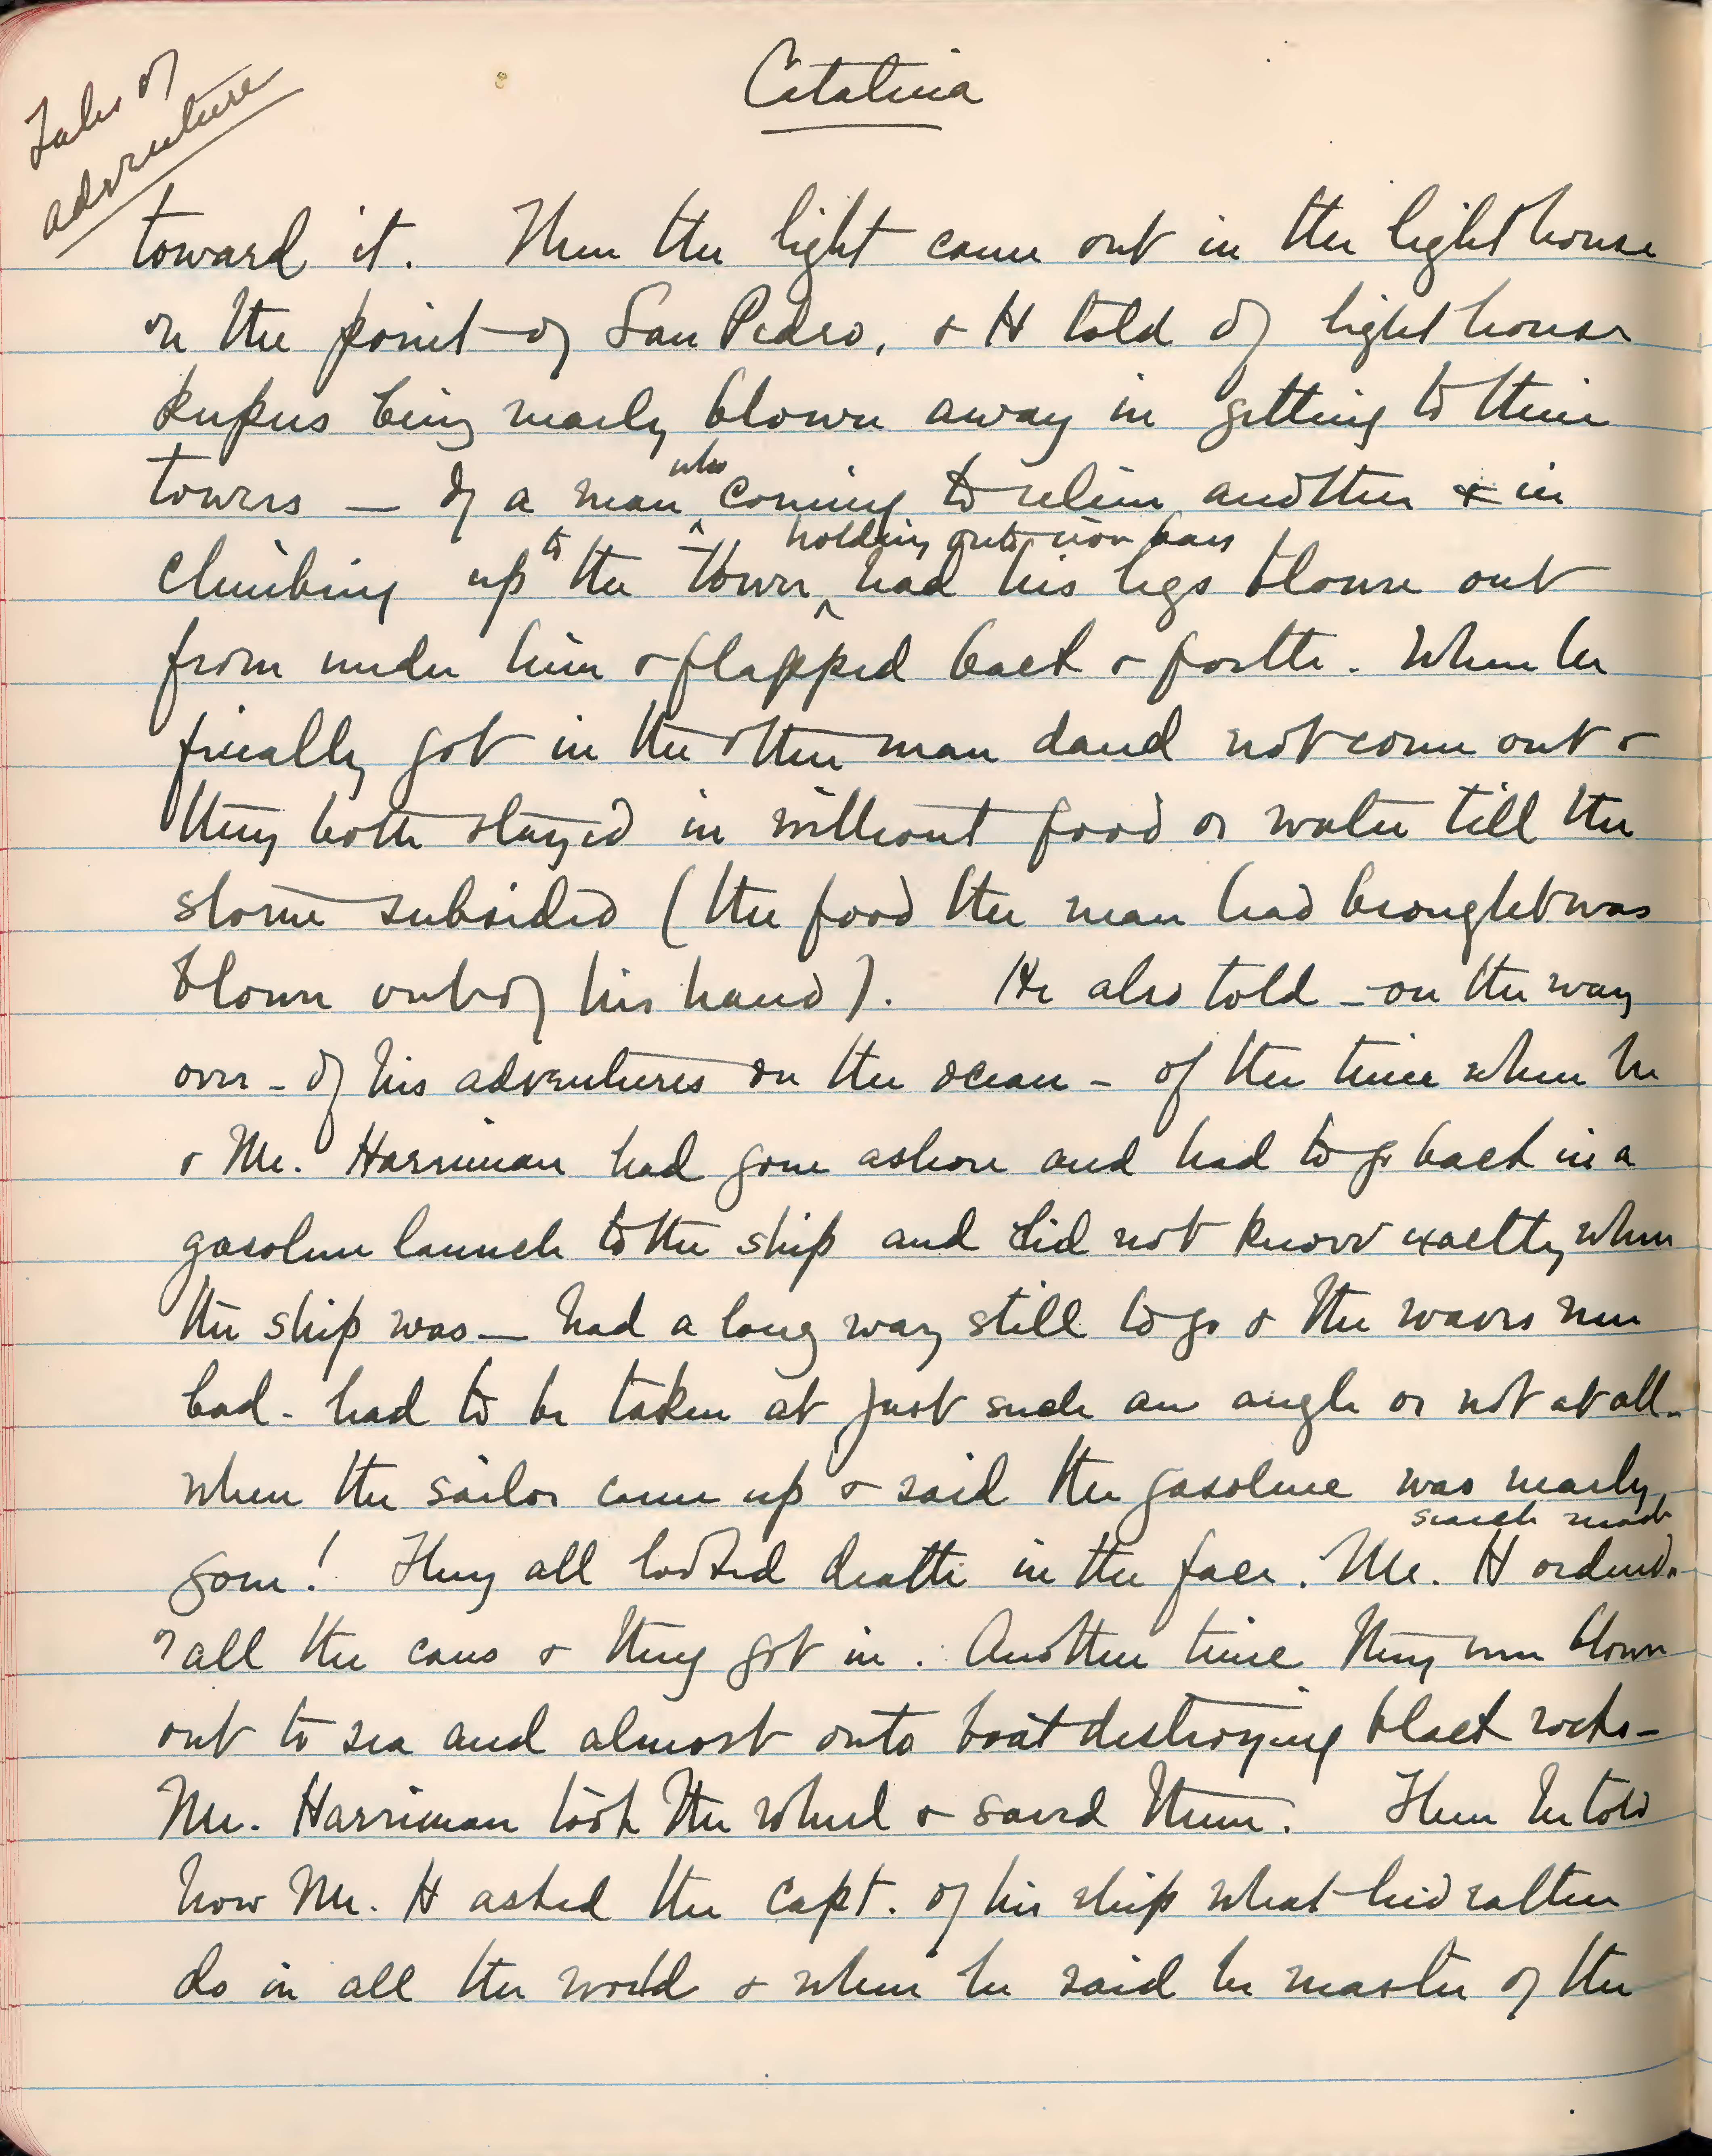 Catalina
Tales of
adventure
toward it. Then the light came out in the light house
on the point of San Pedro, & H told of light house
keepers being nearly blown away in getting to their
towers — of a man who coming to relieve another & in
climbing up to the tower, holding onto iron bars had his legs blown out
from under him & flapped back & forth. When he
finally got in the other man dared not come out &
they both stayed in without food or water till the
storm subsided (the food the man had brought was
blown out of his hand). He also told – on the way
over – of his adventures on the ocean – of the time when he
& Mr. Harriman had gone ashore and had to go back in a
gasoline launch to the ship and did not know exactly where
the ship was — had a long way still to go & the waves were
bad – had to be taken at just such an angle or not at all –
when the sailor came up & said the gasoline was nearly
gone! They all looked death in the face. Mr. H ordered search made
of all the cans & they got in. Another time they were blown
out to sea and almost onto boat destroying black rocks –
Mr. Harriman took the wheel & saved them. Then he told
how Mr. H asked the Capt. of his ship what he'd rather
do in all the world & when he said be master of the